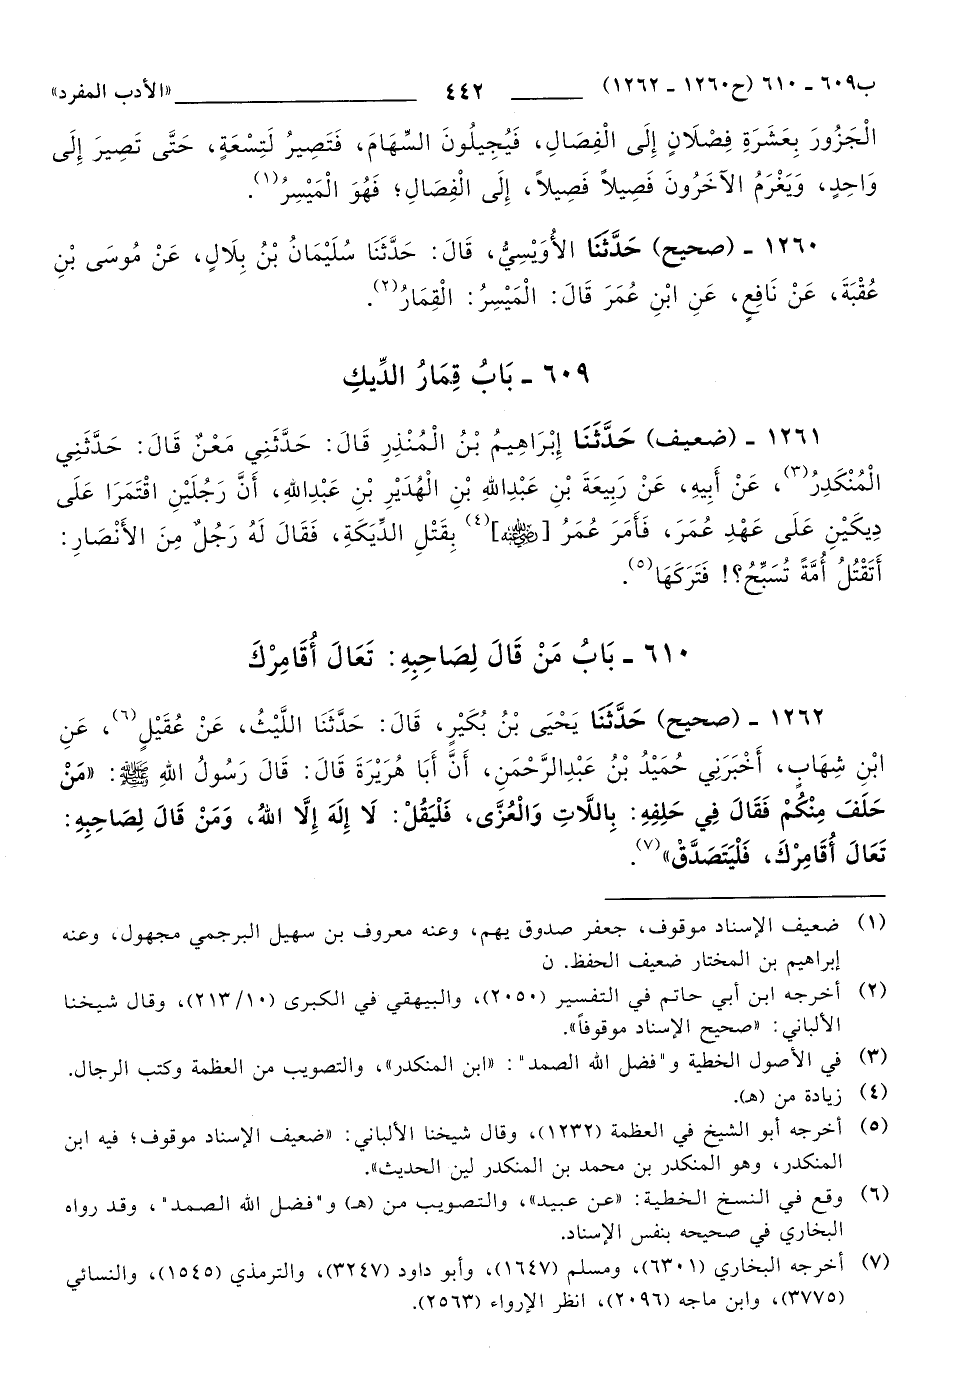 ب٦٠٩ - ٦١٠ (ح١٢٦٠ - ١٢٦٢) ٤٤٢ «الأدب المفرد»
الْجَزُورَ بِعَشَرَةِ فِصْلَانٍ إِلَى الْفِصَالِ، فَيُجِيلُونَ السِّهَامَ، فَتَصِيرُ لَتِسْعَةٍ، حَتَّى تَصِيرَ إِلَى
وَاحِدٍ، وَيَغْرَمُ الآخَرُونَ فَصِيلاً فَصِيلاً، إِلَى الْفِصَالِ؛ فَهُوَ الْمَيْسِرُ(١).
١٢٦٠ - (صحيح) حَدَّثَنَا الأُوَيْسِيُّ، قَالَ: حَدَّثَنَا سُلَيْمَانُ بْنُ بِلَالٍ، عَنْ مُوسَى بْنِ
عُقْبَةَ، عَنْ نَافِعٍ، عَنِ ابْنِ عُمَرَ قَالَ: الْمَيْسِرُ: الْقِمَارُ(٢).
٦٠٩ - بَابُ قِمَارُ الدِّيكِ
١٢٦١ - (ضعيف) حَدَّثَنَا إِبْرَاهِيمُ بْنُ الْمُنْذِرِ قَالَ: حَدَّثَنِي مَعْنٌ قَالَ: حَدَّثَنِي
الْمُنْكَدِرُ(٣)، عَنْ أَبِيهِ، عَنْ رَبِيعَةَ بْنِ عَبْدِاللهِ بْنِ الْهُدَيْرِ بْنِ عَبْدِاللهِ، أَنَّ رَجُلَيْنِ اقْتَمَرَا عَلَى
دِيكَيْنِ عَلَى عَهْدِ عُمَرَ، فَأَمَرَ عُمَرُ [رضي الله عنه](٤) بِقَتْلِ الدِّيَكَةِ، فَقَالَ لَهُ رَجُلٌ مِنَ الأَنْصَارِ:
أَتَقْتُلُ أُمَّةً تُسَبِّحُ؟! فَتَرَكَهَا(٥).
٦١٠ - بَابُ مَنْ قَالَ لِصَاحِبِهِ: تَعَالَ أُقَامِرْكَ
١٢٦٢ - (صحيح) حَدَّثَنَا يَحْيَى بْنُ بُكَيْرٍ، قَالَ: حَدَّثَنَا اللَّيْثُ، عَنْ عُقَيْلٍ(٦)، عَنِ
ابْنِ شِهَابٍ، أَخْبَرَنِي حُمَيْدُ بْنُ عَبْدِالرَّحْمَنِ، أَنَّ أَبَا هُرَيْرَةَ قَالَ: قَالَ رَسُولُ اللهِ ﷺ: «مَنْ
حَلَفَ مِنْكُمْ فَقَالَ فِي حَلِفِهِ: بِاللَّاتِ وَالْعُزَّى، فَلْيَقُلْ: لَا إِلَهَ إِلَّا اللهُ، وَمَنْ قَالَ لِصَاحِبِهِ:
تَعَالَ أُقَامِرْكَ، فَلْيَتَصَدَّقْ»(٧).
(١) ضعيف الإسناد موقوف، جعفر صدوق يهم، وعنه معروف بن سهيل البرجمي مجهول، وعنه
إبراهيم بن المختار ضعيف الحفظ. ن
(٢) أخرجه ابن أبي حاتم في التفسير (٢٠٥٠)، والبيهقي في الكبرى (٢١٣/١٠)، وقال شيخنا
الألباني: «صحيح الإسناد موقوفاً».
(٣) في الأصول الخطية و"فضل الله الصمد": «ابن المنكدر»، والتصويب من العظمة وكتب الرجال.
(٤) زيادة من (هـ).
(٥) أخرجه أبو الشيخ في العظمة (١٢٣٢)، وقال شيخنا الألباني: «ضعيف الإسناد موقوف؛ فيه ابن
المنكدر، وهو المنكدر بن محمد بن المنكدر لين الحديث».
(٦) وقع في النسخ الخطية: «عن عبيد»، والتصويب من (هـ) و"فضل الله الصمد"، وقد رواه
البخاري في صحيحه بنفس الإسناد.
(٧) أخرجه البخاري (٦٣٠١)، ومسلم (١٦٤٧)، وأبو داود (٣٢٤٧)، والترمذي (١٥٤٥)، والنسائي
(٣٧٧٥)، وابن ماجه (٢٠٩٦)، انظر الإرواء (٢٥٦٣).